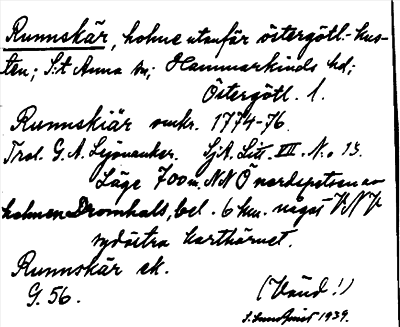 Runnskär, holme utanför östergötl.-kus-
ten; S:t Anna sn; Hammarkinds hd;
Östergötl. l.
Runnskiär omkr. 1774-76.
Trol. G. A. Lejonanker. SjA. Litt. VII. No 13.
Läge 700 m NNÖ nordspetsen av
holmen Dromhals, bel. 6 km. något VNV
sydöstra karthörnet.
Runnskär ek.
G. 56.
(Vänd!)
S. Lundquist 1939.